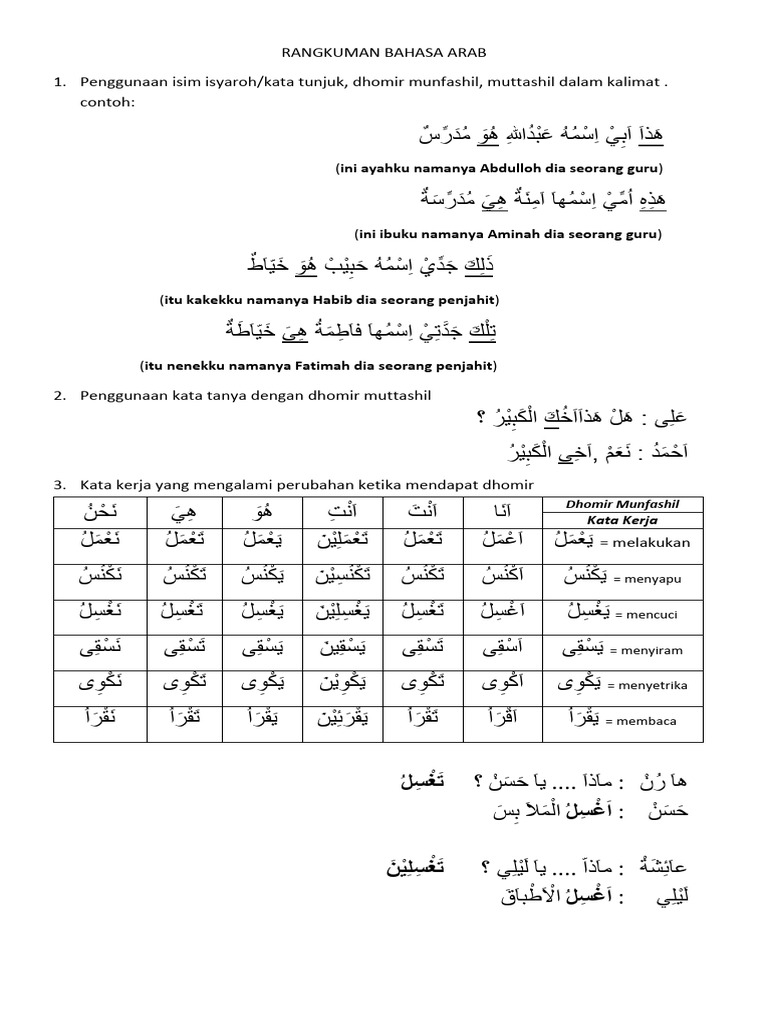 RANGKUMAN BAHASA ARAB
1. Penggunaan isim isyaroh/kata tunjuk, dhomir munfashil, muttashil dalam kalimat .
contoh:
هَذاَ اَبِيْ اِسْمُهُ عَبْدُاللهِ هُوَ مُدَرِّسٌ
(ini ayahku namanya Abdulloh dia seorang guru)
هَذِهِ اُمِّيْ اِسْمُهاَ اَمِنَةٌ هِيَ مُدَرِّسَةٌ
(ini ibuku namanya Aminah dia seorang guru)
ذَلِكَ جَدِّيْ اِسْمُهُ حَبِيْبْ هُوَ خَيَّاطٌ
(itu kakekku namanya Habib dia seorang penjahit)
تِلْكَ جَدَّتِيْ اِسْمُهاَ فاَطِمَةُ هِيَ خَيَّاطَةٌ
(itu nenekku namanya Fatimah dia seorang penjahit)
2. Penggunaan kata tanya dengan dhomir muttashil
عَلِى : هَلْ هَذاَاَخُكَ الْكَبِيْرُ ؟
اَحْمَدُ : نَعَمْ, اَخِي الْكَبِيْرُ
3. Kata kerja yang mengalami perubahan ketika mendapat dhomir
نَحْنُ هِيَ هُوَ اَنْتِ اَنْتَ اَنَا Dhomir Munfashil
Kata Kerja
نَعْمَلُ تَعْمَلُ يَعْمَلُ تَعْمَلِيْنَ تَعْمَلُ اَعْمَلُ يَعْمَلُ = melakukan
نَكْنُسُ تَكْنُسُ يَكْنُسُ تَكْنُسِيْنَ تَكْنُسُ اَكْنُسُ يَكْنُسُ = menyapu
نَغْسِلُ تَغْسِلُ يَغْسِلُ يَغْسِلِيْنَ تَغْسِلُ اَغْسِلُ يَغْسِلُ = mencuci
نَسْقِى تَسْقِى يَسْقِى يَسْقِيْنَ تَسْقِى اَسْقِى يَسْقِى = menyiram
نَكْوِى تَكْوِى يَكْوِى يَكْوِيْنَ تَكْوِى اَكْوِى يَكْوِى = menyetrika
نَقْرَاُ تَقْرَاُ يَقْرَاُ يَقْرَئِيْنَ تَقْرَاُ اَقْرَاُ يَقْرَاُ = membaca
هاَ رُنْ : ماَذاَ .... يا حَسَنْ ؟ تَغْسِلُ
حَسَنْ : اَغْسِلُ الْمَلاَ بِسَ
عاَئِشَةُ : ماَذاَ .... يا لَيْلِي ؟ تَغْسِلِيْنَ
لَيْلِي : اَغْسِلُ الْاَطْباَقَ